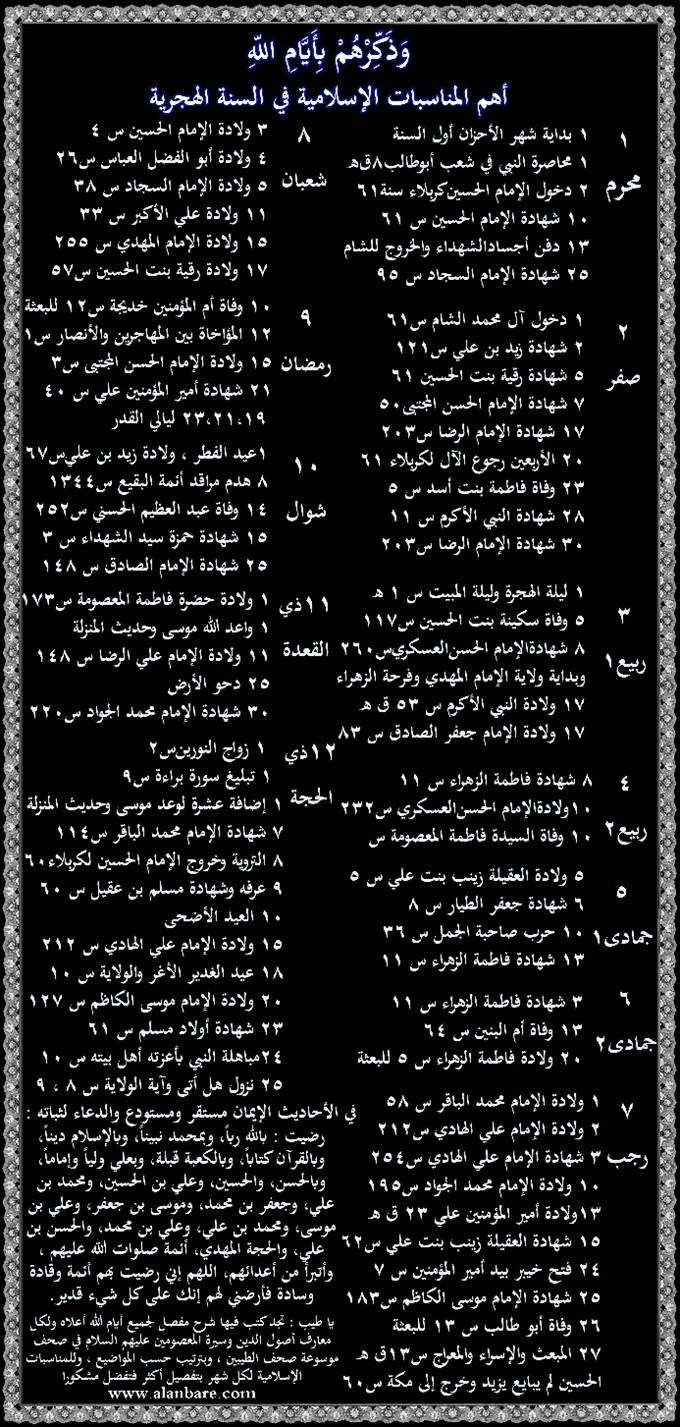 وَذَكِّرْهُمْ بِأَيَّامِ اللهِ
أهم المناسبات الإسلامية في السنة الهجرية
١ محرم
١ بداية شهر الأحزان أول السنة
١ محاصرة النبي في شعب أبوطالب٨ق‌ه
٢ دخول الإمام الحسين‌كربلاء سنة٦١
١٠ شهادة الإمام الحسين س ٦١
١٣ دفن أجسادالشهداء والخروج للشام
٢٥ شهادة الإمام السجاد س ٩٥
٢ صفر
١ دخول آل محمد الشام س٦١
٢ شهادة زيد بن علي س١٢١
٥ شهادة رقية بنت الحسين ٦١
٧ شهادة الإمام الحسن المجتبى٥٠
١٧ شهادة الإمام الرضا س٢٠٣
٢٠ الأربعين رجوع الآل لكربلاء ٦١
٢٣ وفاة فاطمة بنت أسد س ٥
٢٨ شهادة النبي الأكرم س ١١
٣٠ شهادة الإمام الرضا س٢٠٣
٣ ربيع١
١ ليلة الهجرة وليلة المبيت س ١ ه
٥ وفاة سكينة بنت الحسين س١١٧
٨ شهادةالإمام الحسن‌العسكري‌س٢٦٠
وبداية ولاية الإمام المهدي وفرحة الزهراء
١٧ ولادة النبي الأكرم س ٥٣ ق ه
١٧ ولادة الإمام جعفر الصادق س ٨٣
٤ ربيع٢
٨ شهادة فاطمة الزهراء س ١١
١٠ولادةالإمام الحسن‌العسكري س٢٣٢
١٠ وفاة السيدة فاطمة المعصومة س
٥ جمادى١
٥ ولادة العقيلة زينب بنت علي س ٥
٦ شهادة جعفر الطيار س ٨
١٠ حرب صاحبة الجمل س ٣٦
١٣ شهادة فاطمة الزهراء س ١١
٦ جمادى٢
٣ شهادة فاطمة الزهراء س ١١
١٣ وفاة أم البنين س ٦٤
٢٠ ولادة فاطمة الزهراء س ٥ للبعثة
٧ رجب
١ ولادة الإمام محمد الباقر س ٥٨
٢ ولادة الإمام علي الهادي س٢١٢
٣ شهادة الإمام علي الهادي س ٢٥٤
١٠ ولادة الإمام محمد الجواد س١٩٥
١٣ولادة أمير المؤمنين علي ٢٣ ق ه
١٥ شهادة العقيلة زينب بنت علي س٦٢
٢٤ فتح خيبر بيد أمير المؤمنين س ٧
٢٥ شهادة الإمام موسى الكاظم س١٨٣
٢٦ وفاة أبو طالب س ١٣ للبعثة
٢٧ المبعث والإسراء والمعراج س١٣ق ه
الحسين لم يبايع يزيد وخرج إلى مكة س٦٠
٨ شعبان
٣ ولادة الإمام الحسين س ٤
٤ ولادة أبو الفضل العباس س٢٦
٥ ولادة الإمام السجاد س ٣٨
١١ ولادة علي الأكبر س ٣٣
١٥ ولادة الإمام المهدي س ٢٥٥
١٧ ولادة رقية بنت الحسين س٥٧
٩ رمضان
١٠ وفاة أم المؤمنين خديجة س١٢ للبعثة
١٢ المؤاخاة بين المهاجرين والأنصار س١
١٥ ولادة الإمام الحسن المجتبى س٣
٢١ شهادة أمير المؤمنين علي س ٤٠
٢٣،٢١،١٩ ليالي القدر
١٠ شوال
١عيد الفطر ، ولادة زيد بن علي‌س٦٧
٨ هدم مراقد أئمة البقيع س١٣٤٤
١٤ وفاة عبد العظيم الحسني س٢٥٢
١٥ شهادة حمزة سيد الشهداء س ٣
٢٥ شهادة الإمام الصادق س ١٤٨
١١ذي القعدة
١ ولادة حضرة فاطمة المعصومة س١٧٣
١ واعد الله موسى وحديث المنزلة
١١ ولادة الإمام علي الرضا س ١٤٨
٢٥ دحو الأرض
٣٠ شهادة الإمام محمد الجواد س٢٢٠
١٢ذي الحجة
١ زواج النورين‌س٢
١ تبليغ سورة براءة س٩
١ إضافة عشرة لوعد موسى وحديث المنزلة
٧ شهادة الإمام محمد الباقر س١١٤
٨ التروية وخروج الإمام الحسين لكربلاء٦٠
٩ عرفه وشهادة مسلم بن عقيل س ٦٠
١٠ العيد الأضحى
١٥ ولادة الإمام علي الهادي س ٢١٢
١٨ عيد الغدير الأغر والولاية س ١٠
٢٠ ولادة الإمام موسى الكاظم س ١٢٧
٢٣ شهادة أولاد مسلم س ٦١
٢٤مباهلة النبي بأعزته أهل بيته س ١٠
٢٥ نزول هل أتى وآية الولاية س ٨ ، ٩
في الأحاديث الإيمان مستقر ومستودع والدعاء لثباته :
رضيت : بالله رباً، وبمحمد نبيناً، وبالإسلام ديناً،
وبالقرآن كتاباً، وبالكعبة قبلة، وبعلي ولياً وإماماً،
وبالحسن، والحسين، وعلي بن الحسين، ومحمد بن
علي، وجعفر بن محمد، وموسى بن جعفر، وعلي بن
موسى، ومحمد بن علي، وعلي بن محمد، والحسن بن
علي، والحجة المهدي، أئمة صلوات الله عليهم ،
وأتبرأ من أعدائهم، اللهم إني رضيت بهم أئمة وقادة
وسادة فأرضني لهم إنك على كل شيء قدير.
يا طيب : تجد كتب فيها شرح مفصل لجميع أيام الله أعلاه ولكل
معارف أصول الدين وسيرة المعصومين عليهم السلام في صحف
موسوعة صحف الطيبين ، وبترتيب حسب المواضيع ، وللمناسبات
الإسلامية لكل شهر بتفصيل أكثر فتفضل مشكورا
www.alanbare.com